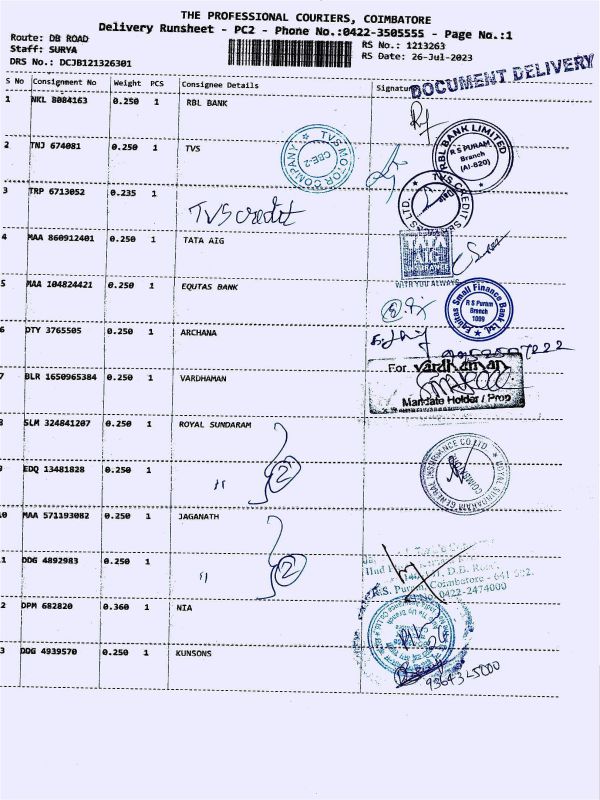 THE PROFESSIONAL COURIERS, COIMBATORE
Delivery Runsheet - PC2 - Phone No.:0422-3505555 - Page No.:1
Route: DB ROAD
Staff: SURYA
DRS No.: DCJB121326301
RS No.: 1213263
RS Date: 26-Jul-2023
DOCUMENT DELIVERY
S No Consignment No Weight PCS Consignee Details Signature
1 NKL 8084163 0.250 1 RBL BANK
RBL BANK LIMITED
R S PURAM
Branch
(AI-620)
2 TNJ 674081 0.250 1 TVS
TVS MOTOR COMPANY
CBE-2
3 TRP 6713052 0.235 1 TVS credit
4 MAA 860912401 0.250 1 TATA AIG
TATA
AIG
INSURANCE
WITH YOU ALWAYS
5 MAA 104824421 0.250 1 EQUTAS BANK
Equitas Small Finance Bank Ltd.
R S Puram
Branch
1099
6 DTY 3765505 0.250 1 ARCHANA
7 BLR 1650965384 0.250 1 VARDHAMAN
For. Vardhaman
Mandate Holder / Prop
8 SLM 324841207 0.250 1 ROYAL SUNDARAM
ROYAL SUNDARAM GENERAL INSURANCE CO LTD
9 EDQ 13481828 0.250 1 " 2
10 MAA 571193082 0.250 1 JAGANATH
11 DDG 4892983 0.250 1 " 2
D.B. Road
R.S. Puram, Coimbatore - 641 002.
0422-2474000
12 DPM 682820 0.360 1 NIA
13 DDG 4939570 0.250 1 KUNSONS